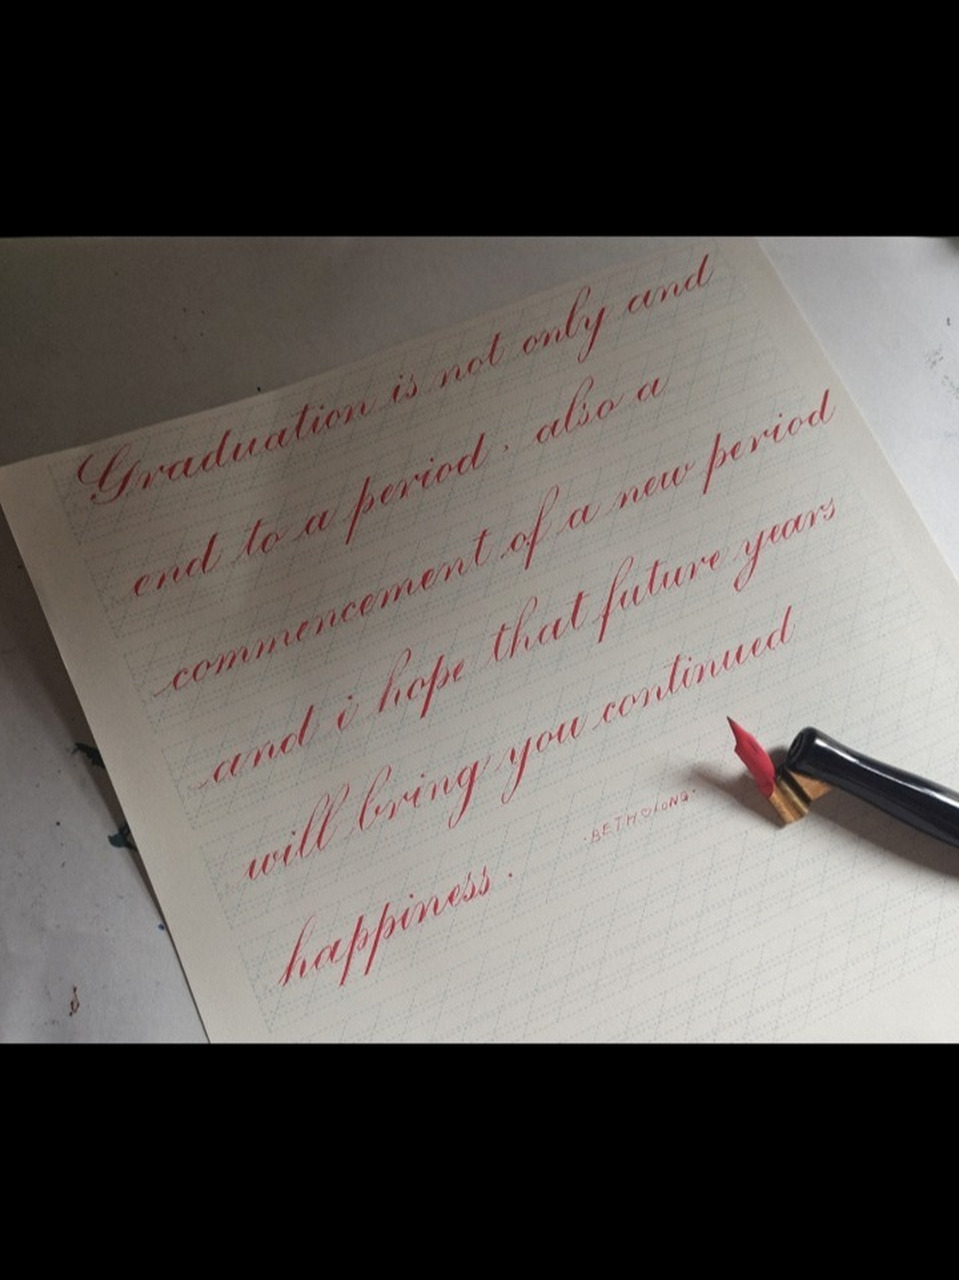 Graduation is not only and
end to a period, also a
commencement of a new period
and i hope that future years
will bring you continued
happiness.